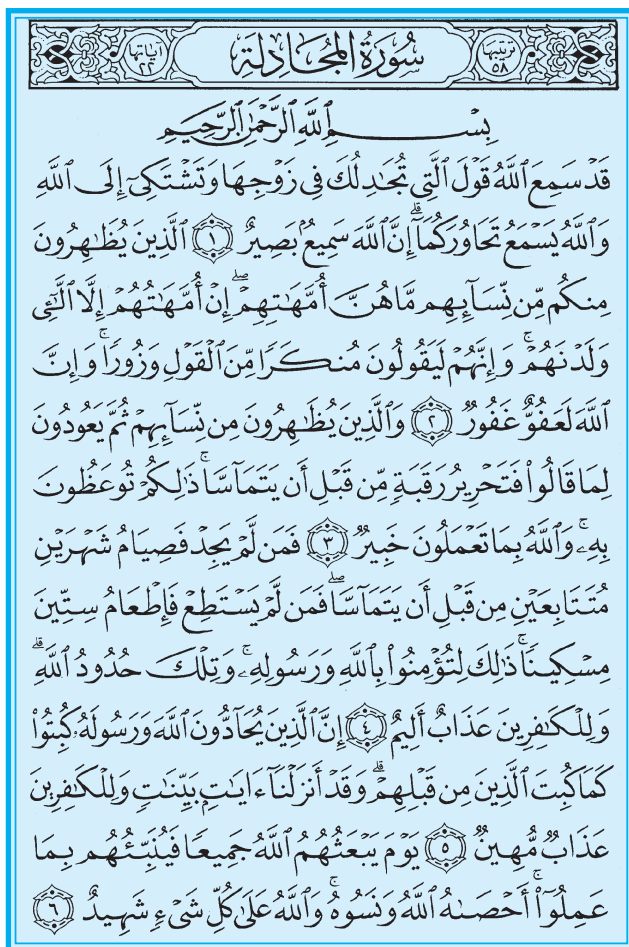 ترتيبها ٥٨ سُورَةُ المُجَادِلَةِ آياتها ٢٢
بِسْمِ ٱللَّهِ ٱلرَّحْمَٰنِ ٱلرَّحِيمِ
قَدْ سَمِعَ ٱللَّهُ قَوْلَ ٱلَّتِى تُجَٰدِلُكَ فِى زَوْجِهَا وَتَشْتَكِىٓ إِلَى ٱللَّهِ
وَٱللَّهُ يَسْمَعُ تَحَاوُرَكُمَآ ۚ إِنَّ ٱللَّهَ سَمِيعٌۢ بَصِيرٌ ١ ٱلَّذِينَ يُظَٰهِرُونَ
مِنكُم مِّن نِّسَآئِهِم مَّا هُنَّ أُمَّهَٰتِهِمْ ۖ إِنْ أُمَّهَٰتُهُمْ إِلَّا ٱلَّٰٓـِٔى
وَلَدْنَهُمْ ۚ وَإِنَّهُمْ لَيَقُولُونَ مُنكَرًا مِّنَ ٱلْقَوْلِ وَزُورًا ۚ وَإِنَّ
ٱللَّهَ لَعَفُوٌّ غَفُورٌ ٢ وَٱلَّذِينَ يُظَٰهِرُونَ مِن نِّسَآئِهِمْ ثُمَّ يَعُودُونَ
لِمَا قَالُوا۟ فَتَحْرِيرُ رَقَبَةٍ مِّن قَبْلِ أَن يَتَمَآسَّا ۚ ذَٰلِكُمْ تُوعَظُونَ
بِهِۦ ۚ وَٱللَّهُ بِمَا تَعْمَلُونَ خَبِيرٌ ٣ فَمَن لَّمْ يَجِدْ فَصِيَامُ شَهْرَيْنِ
مُتَتَابِعَيْنِ مِن قَبْلِ أَن يَتَمَآسَّا ۖ فَمَن لَّمْ يَسْتَطِعْ فَإِطْعَامُ سِتِّينَ
مِسْكِينًا ۚ ذَٰلِكَ لِتُؤْمِنُوا۟ بِٱللَّهِ وَرَسُولِهِۦ ۚ وَتِلْكَ حُدُودُ ٱللَّهِ ۗ
وَلِلْكَٰفِرِينَ عَذَابٌ أَلِيمٌ ٤ إِنَّ ٱلَّذِينَ يُحَآدُّونَ ٱللَّهَ وَرَسُولَهُۥ كُبِتُوا۟
كَمَا كُبِتَ ٱلَّذِينَ مِن قَبْلِهِمْ ۚ وَقَدْ أَنزَلْنَآ ءَايَٰتٍۭ بَيِّنَٰتٍ ۚ وَلِلْكَٰفِرِينَ
عَذَابٌ مُّهِينٌ ٥ يَوْمَ يَبْعَثُهُمُ ٱللَّهُ جَمِيعًا فَيُنَبِّئُهُم بِمَا
عَمِلُوٓا۟ ۚ أَحْصَىٰهُ ٱللَّهُ وَنَسُوهُ ۚ وَٱللَّهُ عَلَىٰ كُلِّ شَىْءٍ شَهِيدٌ ٦